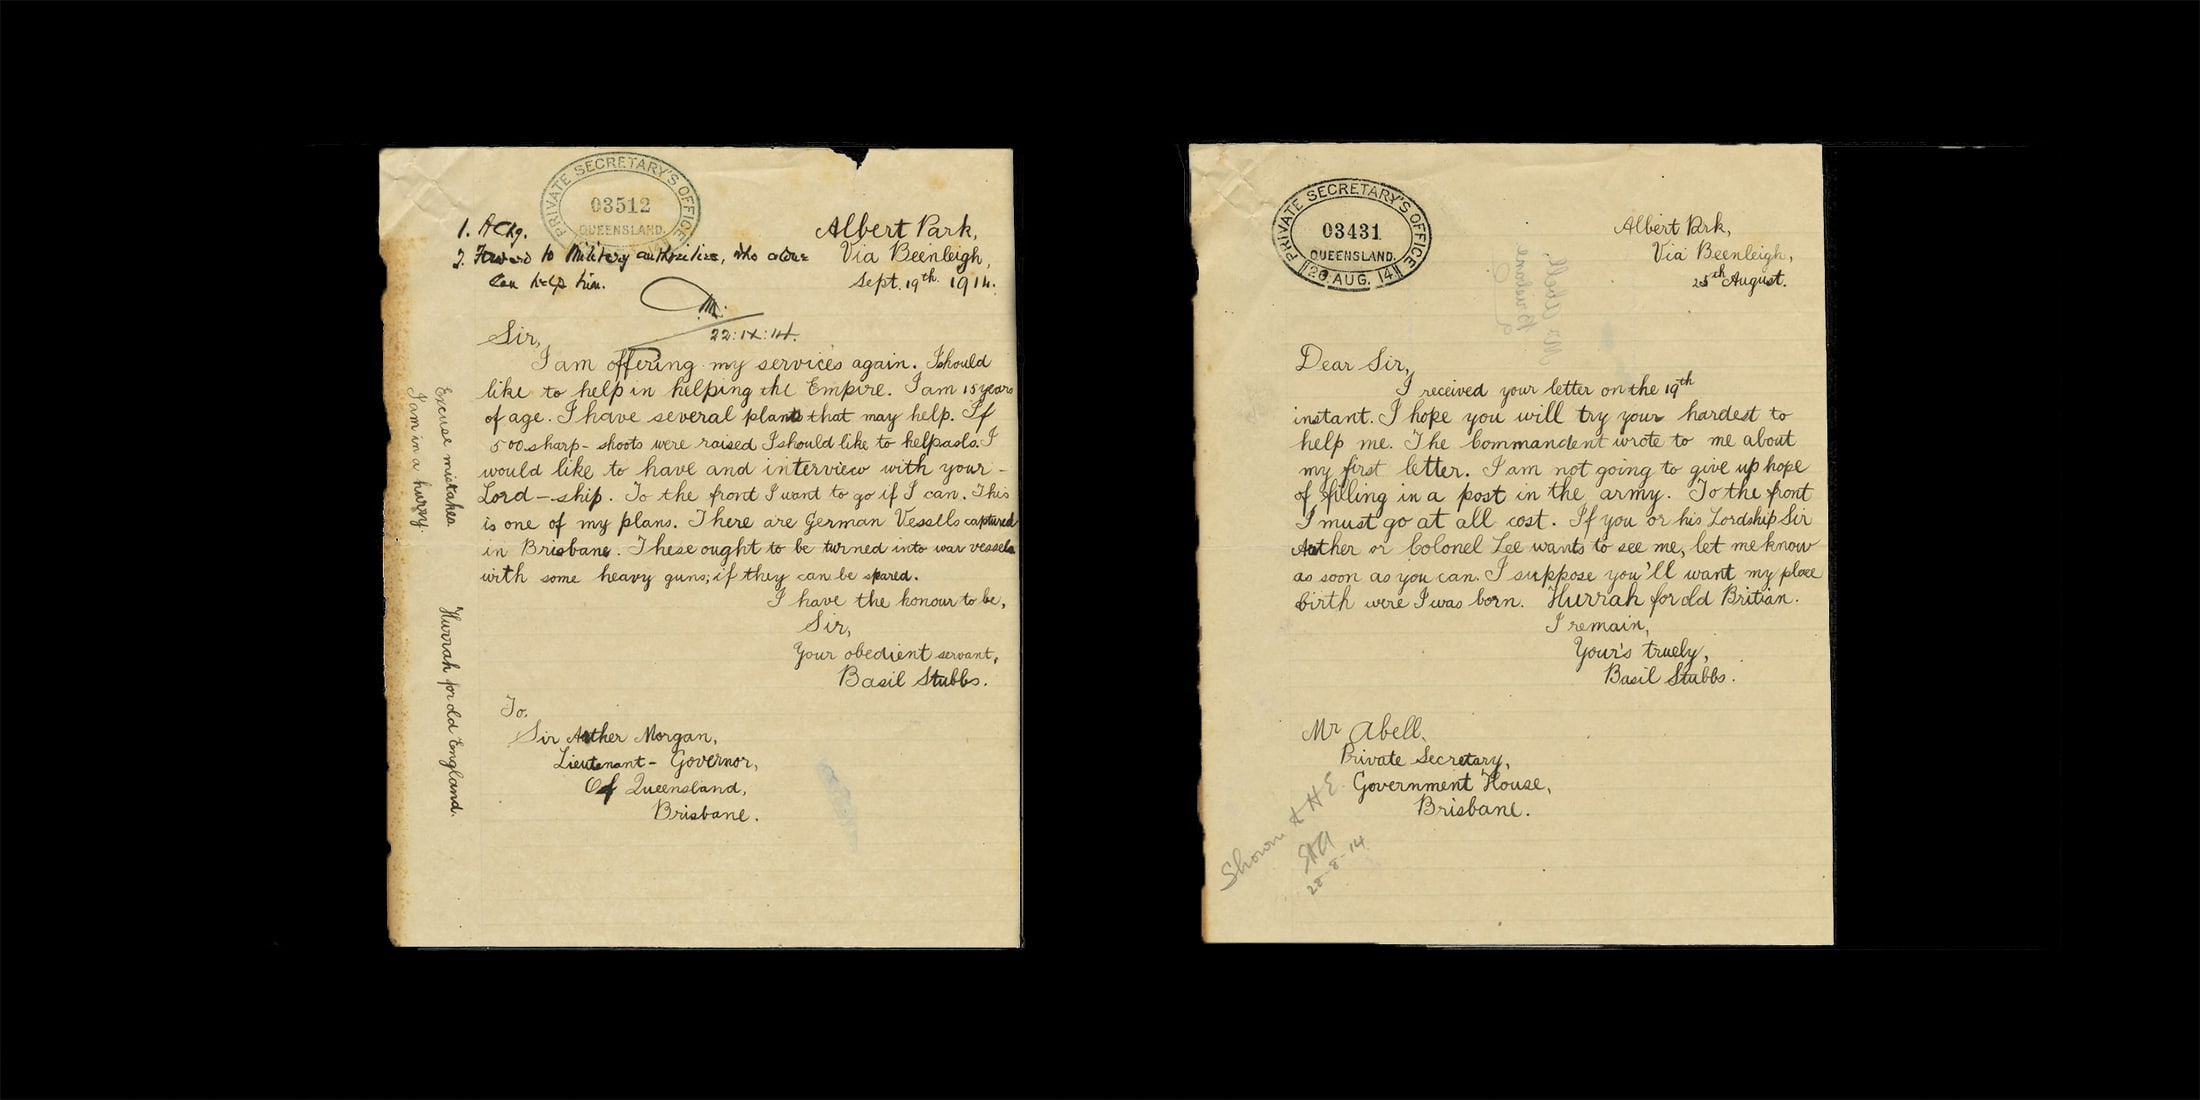 PRIVATE SECRETARY'S OFFICE
03512
QUEENSLAND.
1. Ackg.
2. Forward to Military authorities, who alone
can help him.
22:IX:14.
Albert Park,
Via Beenleigh,
Sept. 19th 1914.
Sir,
I am offering my services again. I should
like to help in helping the Empire. I am 15 years
of age. I have several plans that may help. If
500 sharp-shoots were raised I should like to help aslo. I
would like to have and interview with your-
Lord-ship. To the front I want to go if I can. This
is one of my plans. There are German Vessels captured
in Brisbane. These ought to be turned into war vessels
with some heavy guns; if they can be spared.
I have the honour to be,
Sir,
Your obedient servant,
Basil Stubbs.
To,
Sir Arther Morgan,
Lieutenant-Governor,
Of Queensland,
Brisbane.
Excuse mistakes
I am in a hurry.
Hurrah for old England.
PRIVATE SECRETARY'S OFFICE
03431
QUEENSLAND.
26 AUG. 14
Albert Park,
Via Beenleigh,
25th August.
Mr Abell,
Brisbane
Dear Sir,
I received your letter on the 19th
instant. I hope you will try your hardest to
help me. The Commandent wrote to me about
my first letter. I am not going to give up hope
of filling in a post in the army. To the front
I must go at all cost. If you or his Lordship Sir
Arther or Colonel Lee wants to see me, let me know
as soon as you can. I suppose you'll want my place
birth were I was born. Hurrah for old Britian.
I remain,
Your's truely,
Basil Stubbs.
Mr Abell,
Private Secretary,
Government House,
Brisbane.
Shown to H E
28-8-14